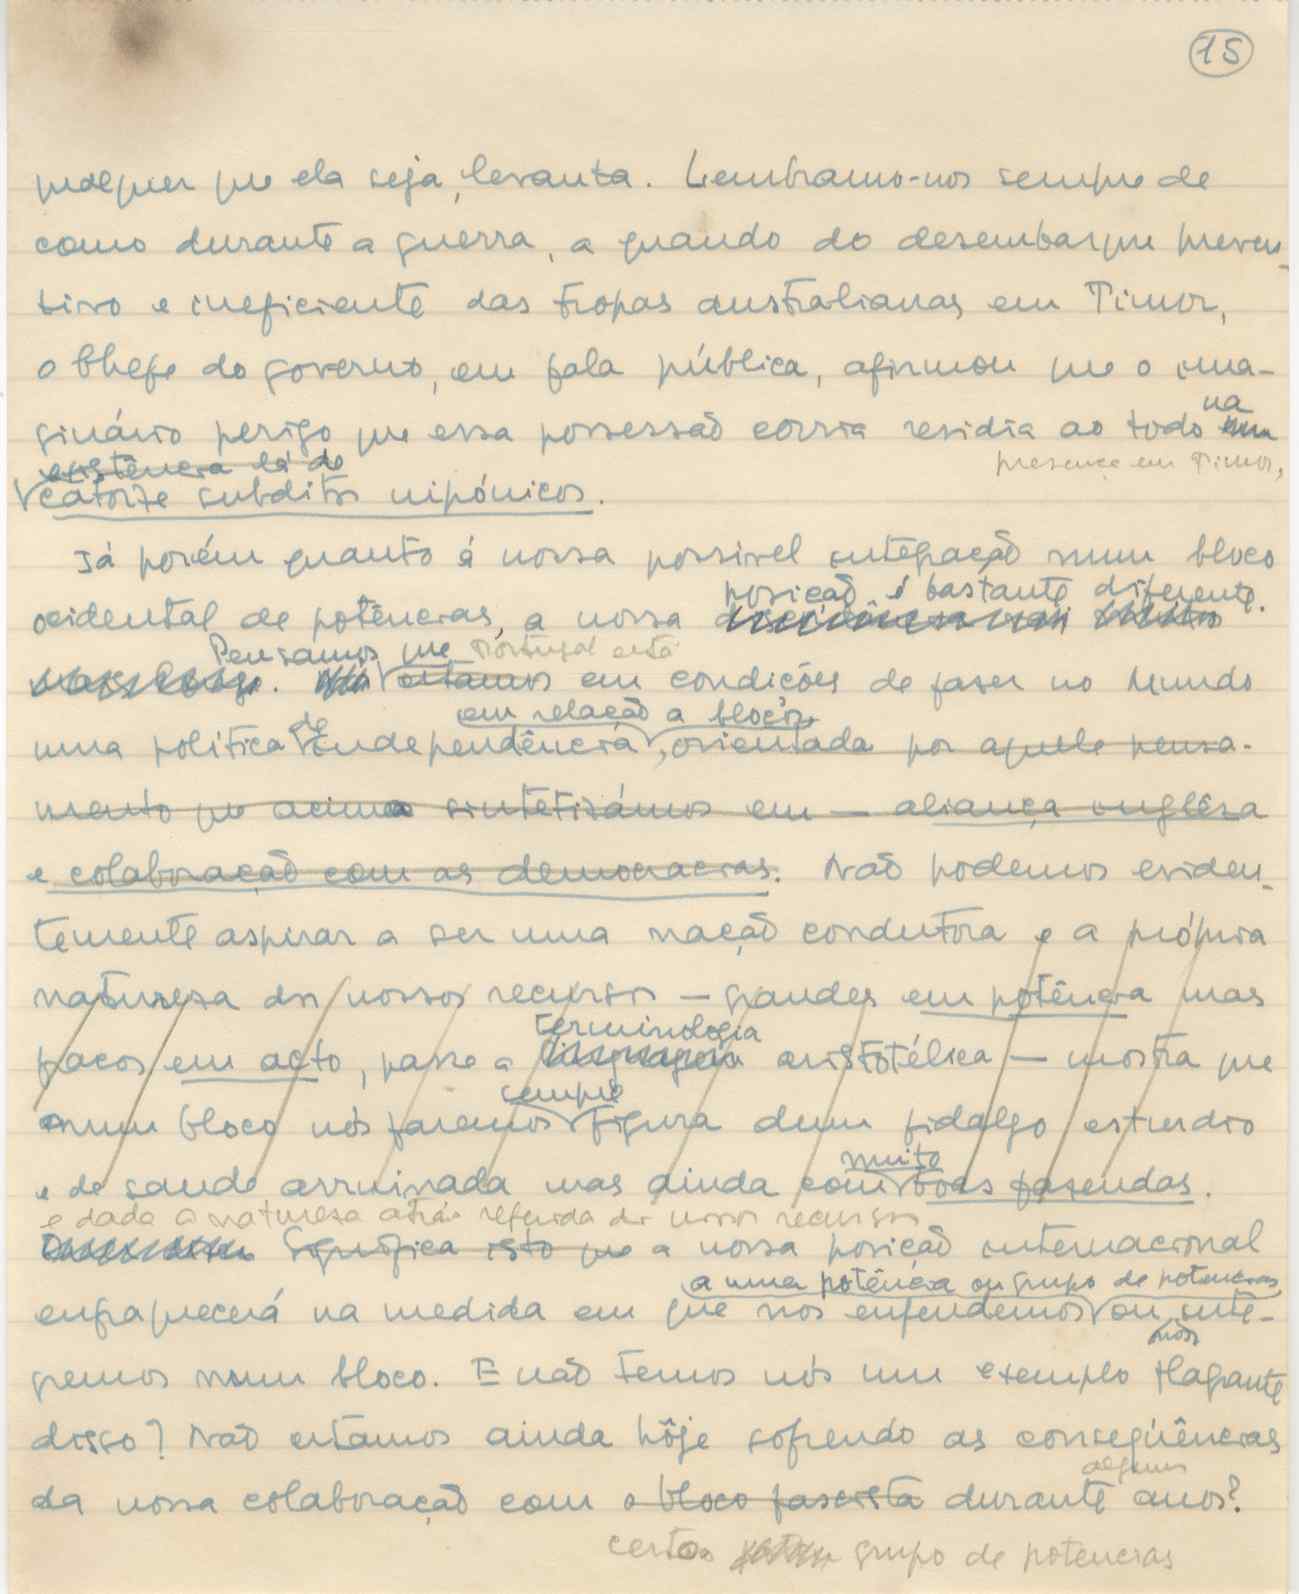 15
qualquer que ela seja, levanta. Lembramo-nos sempre de
como durante a guerra, a quando do desembarque preven-
tivo e ineficiente das tropas australianas em Timor,
o Chefe do governo, em fala pública, afirmou que o ima-
na
ginário perigo que essa possessão corria residia ao todo numa
existência lá de
presença em Timor,
catorze subditos nipónicos.
Já porém quanto á nossa possivel integração num bloco
posição é bastante diferente.
ocidental de potências, a nossa
Pensamos que Portugal está
estamos em condições de fazer no Mundo
de em relação a blocos,
uma política independência, orientada por aquele pensa-
mento que acima sintetizámos em — aliança inglêsa
e colaboração com as democracias. Não podemos eviden-
temente aspirar a ser uma nação condutora e a própria
natureza dos nossos recursos — grandes em potência mas
terminologia
pacos em acto, passe a linguagem aristotélica — mostra que
sempre
num bloco nós faremos figura dum fidalgo esturdio
muito
e de saude arruinada mas ainda com boas fazendas.
e dada a natureza atrás referida dos nossos recursos
Significa isto que a nossa posição internacional
a uma potência ou grupo de potencias,
enfraquecerá na medida em que nos enfeudemos ou inte-
nos
gremos num bloco. E não temos nós um exemplo flagrante
disso? Não estamos ainda hôje sofrendo as conseqüências
alguns
da nossa colaboração com o bloco fascista durante anos?
certo grupo de potencias